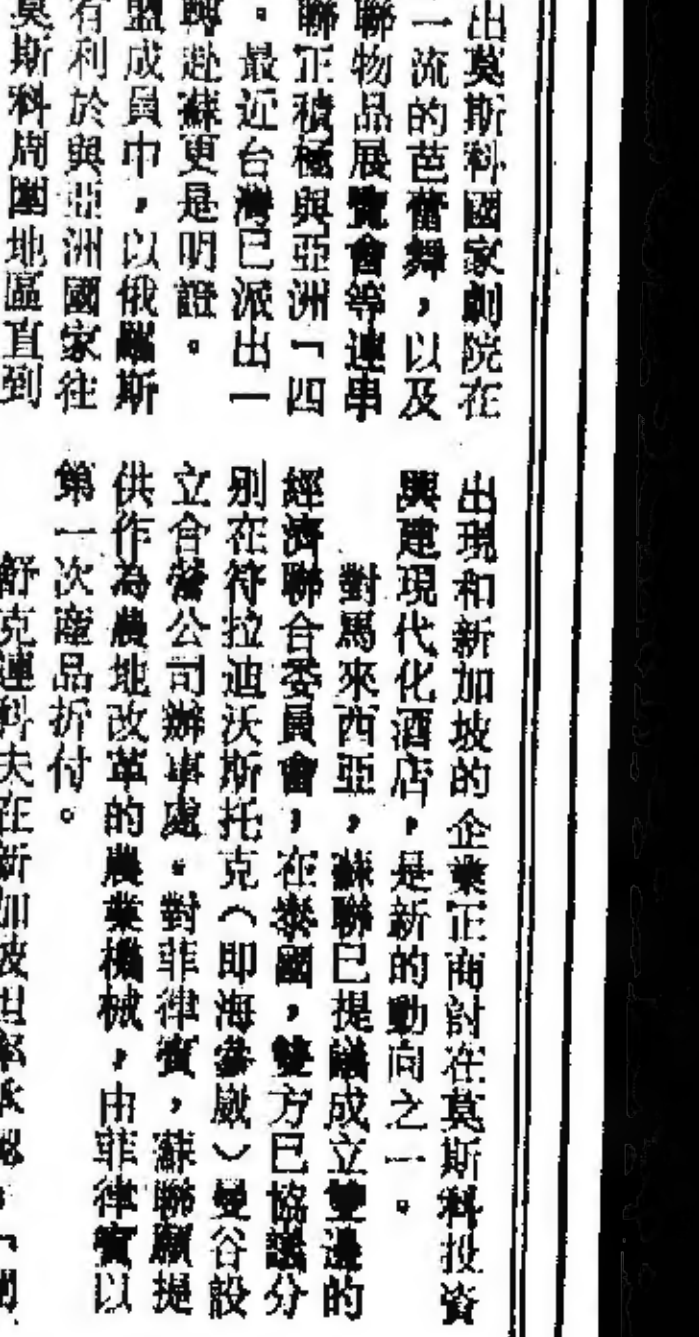 出莫斯科國家劇院在
一流的芭蕾舞，以及
聯物品展覽會等連串
聯正積極與亞洲「四
。最近台灣已派出一
轉赴蘇更是明證。
盟成員中，以俄羅斯
有利於與亞洲國家往
莫斯科周圍地區直到
出現和新加坡的企業正商討在莫斯科投資
興建現代化酒店，是新的動向之一。
對馬來西亞，蘇聯已提議成立雙邊的
經濟聯合委員會，在泰國，雙方已協議分
別在符拉迪沃斯托克（即海參崴）曼谷設
立合營公司辦事處。對菲律賓，蘇聯願提
供作為農地改革的農業機械，由菲律賓以
第一次產品折付。
舒克連科夫在新加坡坦率承認，「